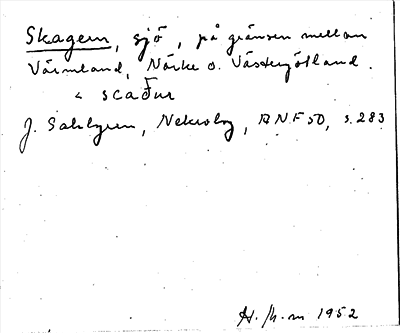 Skagern, sjö, på gränsen mellan
Värmland, Närke o. Västergötland.
< scaður
J. Sahlgren, Nekrolog, ANF 50, s. 283
1952